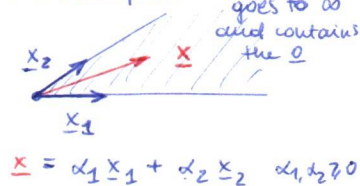 goes to ∞
and contains
the 0
x₂
x
x₁
x = α₁ x₁ + α₂ x₂ α₁, α₂ ≥ 0